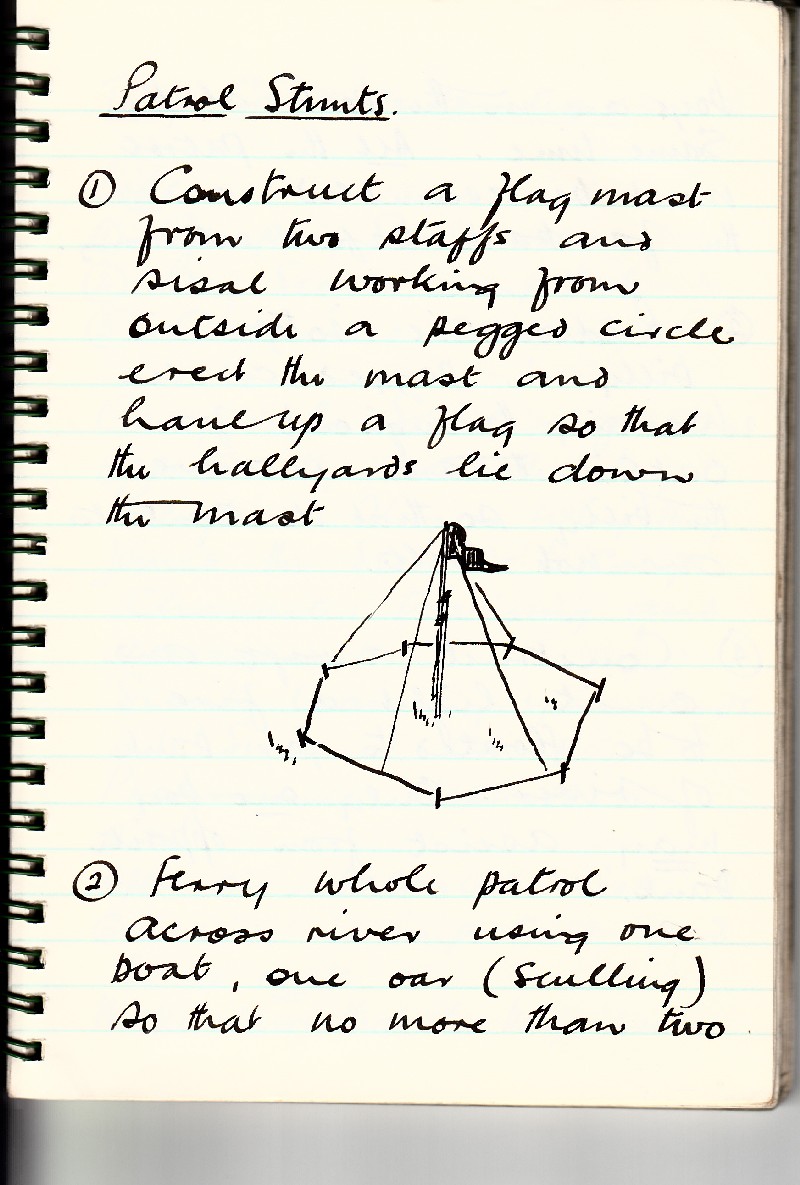 Patrol Stunts.
① Construct a flag mast
from two staffs and
sisal working from
outside a pegged circle
erect the mast and
haul up a flag so that
the hallyards lie down
the mast
② Ferry whole patrol
across river using one
boat, one oar (sculling)
so that no more than two